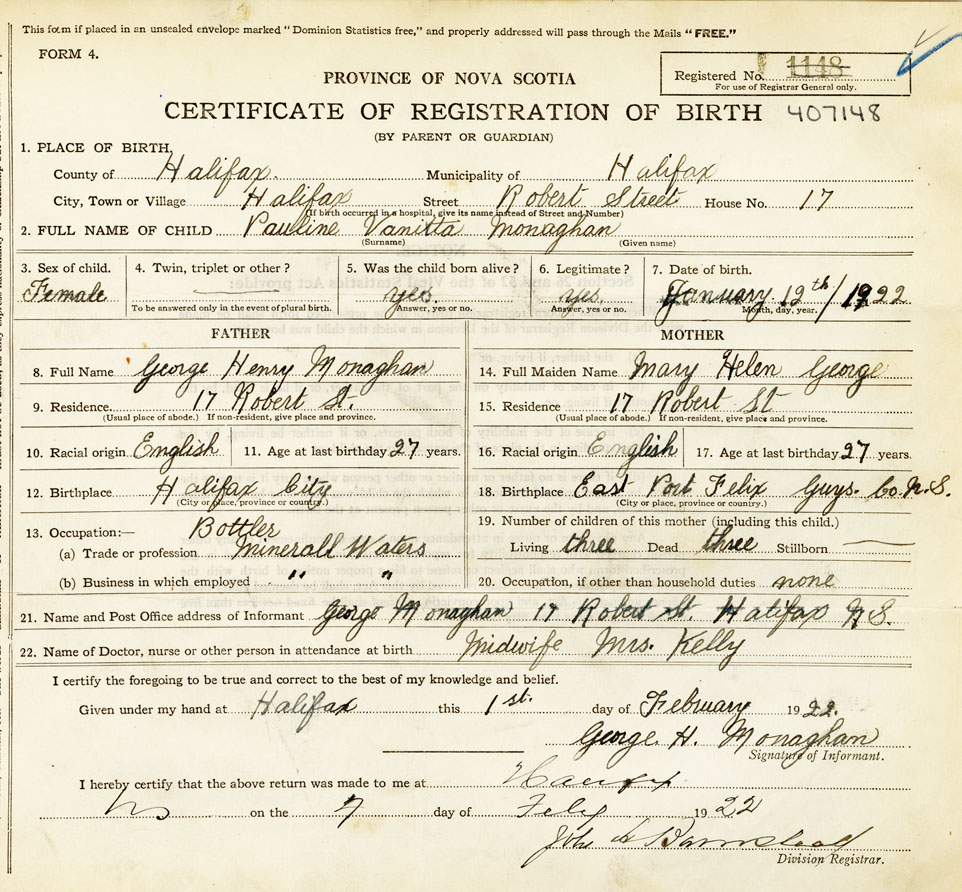 This form if placed in an unsealed envelope marked "Dominion Statistics free," and properly addressed will pass through the Mails "FREE."
FORM 4.
PROVINCE OF NOVA SCOTIA
Registered No. 1148
For use of Registrar General only.
CERTIFICATE OF REGISTRATION OF BIRTH 407148
(BY PARENT OR GUARDIAN)
1. PLACE OF BIRTH,
County of Halifax. Municipality of Halifax
City, Town or Village Halifax Street Robert Street House No. 17
(If birth occurred in a hospital, give its name instead of Street and Number)
2. FULL NAME OF CHILD Pauline Vanitta Monaghan
(Surname) (Given name)
3. Sex of child. 4. Twin, triplet or other? 5. Was the child born alive? 6. Legitimate? 7. Date of birth.
Female yes. yes. January 12th/1922
To be answered only in the event of plural birth. Answer, yes or no. Answer, yes or no. Month, day, year.
FATHER MOTHER
8. Full Name George Henry Monaghan 14. Full Maiden Name Mary Helen George
9. Residence. 17 Robert St. 15. Residence 17 Robert St
(Usual place of abode.) If non-resident, give place and province. (Usual place of abode.) If non-resident, give place and province.
10. Racial origin English 11. Age at last birthday 27 years. 16. Racial origin English 17. Age at last birthday 27 years.
12. Birthplace Halifax City 18. Birthplace East Port Felix Guys. Co. N.S.
(City or place, province or country.) (City or place, province or country.)
13. Occupation:— Bottler 19. Number of children of this mother (including this child.)
(a) Trade or profession Minerall Waters Living three Dead three Stillborn
(b) Business in which employed " " 20. Occupation, if other than household duties none
21. Name and Post Office address of Informant George Monaghan 17 Robert St. Halifax N.S.
22. Name of Doctor, nurse or other person in attendance at birth Midwife Mrs. Kelly
I certify the foregoing to be true and correct to the best of my knowledge and belief.
Given under my hand at Halifax this 1st. day of February 1922.
George. H. Monaghan
Signature of Informant.
I hereby certify that the above return was made to me at Halifax
NS on the 7 day of Feby 1922
John Barnstead
Division Registrar.